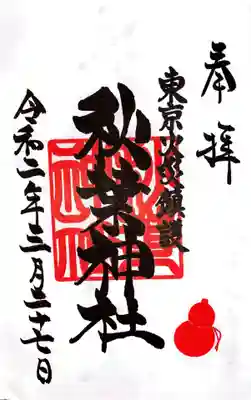 奉拝
東京火防鎮護
秋葉神社
令和二年三月二十七日